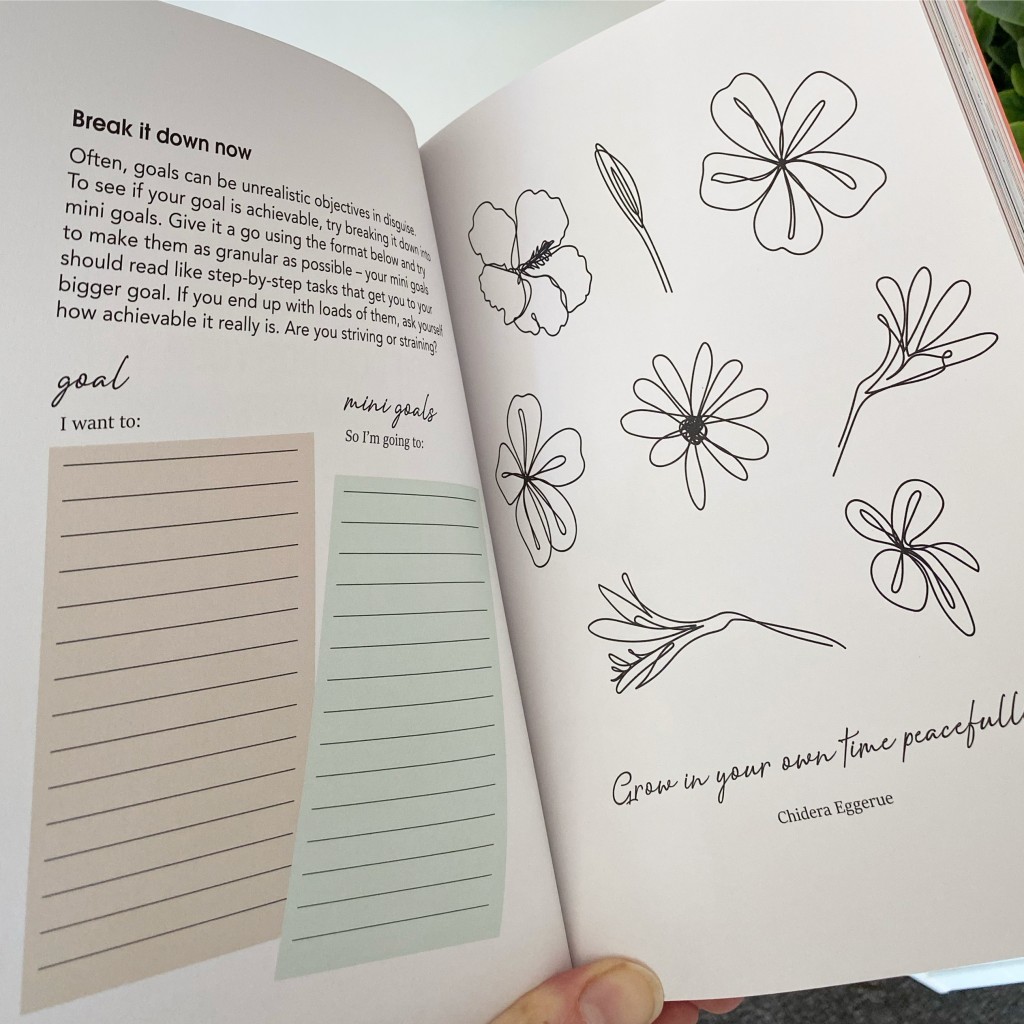 Break it down now
Often, goals can be unrealistic objectives in disguise.
To see if your goal is achievable, try breaking it down into
mini goals. Give it a go using the format below and try
to make them as granular as possible – your mini goals
should read like step-by-step tasks that get you to your
bigger goal. If you end up with loads of them, ask yourself
how achievable it really is. Are you striving or straining?
goal
I want to:
mini goals
So I'm going to:
Grow in your own time peacefull
Chidera Eggerue